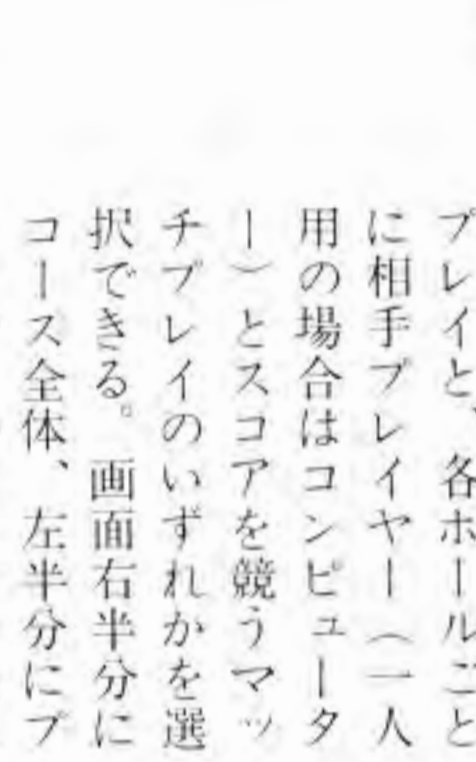 プレイと、各ホールごと
に相手プレイヤー（一人
用の場合はコンピュータ
ー）とスコアを競うマッ
チプレイのいずれかを選
択できる。画面右半分に
コース全体、左半分にプ